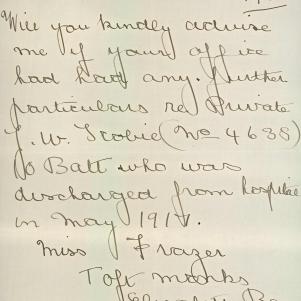 Will you kindly advise
me if your office
had had any further
particulars re Private
J. W. Scobie (No 4638)
50 Batt who was
discharged from hospital
in May 1917.
Miss Frazer
Toft monks